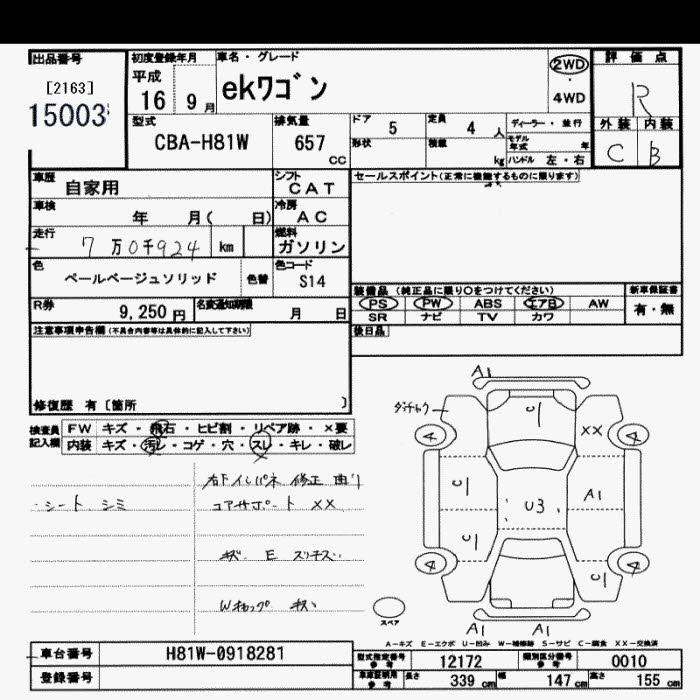 出品番号
[2163]
15003
初度登録年月
平成
16 9 月
車名・グレード
ekワゴン
2WD
4WD
評価点
R
外装 内装
C B
型式
CBA-H81W
排気量
657
CC
ドア
5
定員
4 人
ディーラー・並行
形状
積載
kg
モデル年式
年
ハンドル 左・右
車歴
自家用
シフト
C A T
セールスポイント(正常に機能するものに限ります)
車検
年 月( 日)
冷房
A C
走行
7 万 0 千 924 km
燃料
ガソリン
色
ペールベージュソリッド
色替
色コード
S14
装備品 (純正品に限り○をつけてください)
新車保証書
PS PW ABS エアB AW
有・無
SR ナビ TV カワ
R券
9,250 円
名変通知期限
月 日
後日品
注意事項申告欄(不具合内容等は具体的に記入して下さい)
修復歴 有〔箇所 〕
検査員
記入欄
FW キズ・飛石・ヒビ割・リペア跡・×要
内装 キズ・汚レ・コゲ・穴・スレ・キレ・破レ
・シート シミ
右F インパネ 修正 曲り
コアサポート XX
キズ E
Wキャップ キズ
A1
XX
A1
U3
A1
A1
スペア
A-キズ E-エクボ U-凹み W-補修跡 S-サビ C-腐食 XX-交換済
車台番号
H81W-0918281
登録番号
型式指定番号
参考
12172
類別区分番号
参考
0010
車庫証明用
参考
長さ
339 cm
幅
147 cm
高さ
155 cm